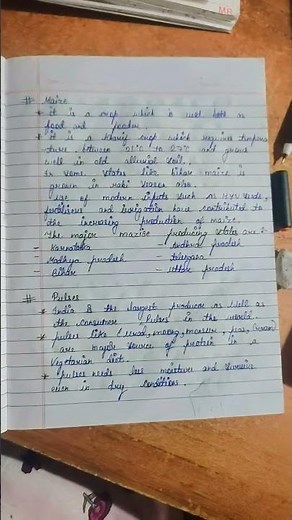 # Maize
* it is a crop which is used both as
food and fodder.
* It is a kharif crop which requires tempera
ture between 21°C to 27°C and grows
well in old alluvial soil.
In some states like bihar maize is
grown in rabi season also.
use of modern inputs such as HYV seeds,
fertilisers and irrigation have contributed to
the increasing production of maize.
The major maize - producing states are :-
- Karnataka - Andhra pradesh
- Madhya pradesh - telengana
- Bihar - uttar pradesh
# Pulses
* India is the largest producer as well as
the consumer Pulses in the world.
* pulses like (urad, moong, masoor, peas,
are major source of protein in a
vegetarian diet.
* pulses needs less moisture and survive
even in dry conditions.